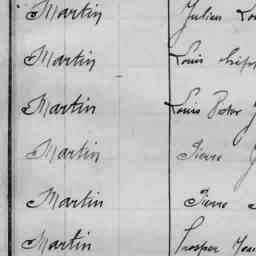 Martin Julien
Martin Louis
Martin Louis Victor
Martin Pierre
Martin Pierre
Martin Prosper